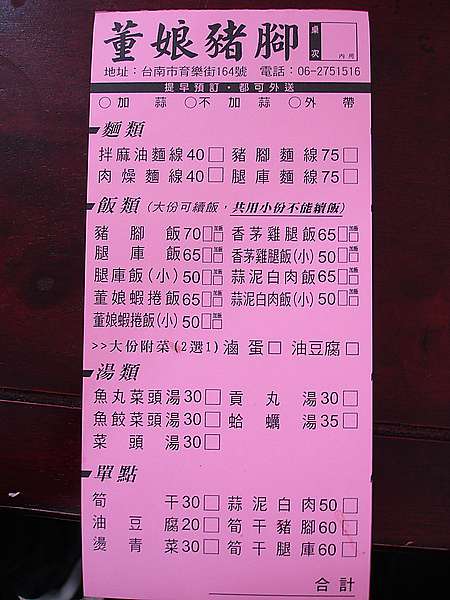 董娘豬腳 桌次 內用
地址：台南市育樂街164號 電話：06-2751516
提早預訂·都可外送
○加蒜○不加蒜○外帶
麵類
拌麻油麵線40□ 豬腳麵線75□
肉燥麵線40□ 腿庫麵線75□
飯類(大份可續飯，共用小份不能續飯)
豬腳飯70□□加飯 香茅雞腿飯65□□加飯
腿庫飯65□□加飯 香茅雞腿飯(小)50□□加飯
腿庫飯(小)50□□加飯 蒜泥白肉飯65□□加飯
董娘蝦捲飯65□□加飯 蒜泥白肉飯(小)50□□加飯
董娘蝦捲飯(小)50□□加飯
>>大份附菜(2選1)滷蛋□ 油豆腐□
湯類
魚丸菜頭湯30□ 貢丸湯30□
魚餃菜頭湯30□ 蛤蠣湯35□
菜頭湯30□
單點
筍干30□ 蒜泥白肉50□
油豆腐20□ 筍干豬腳60□
燙青菜30□ 筍干腿庫60□
合計